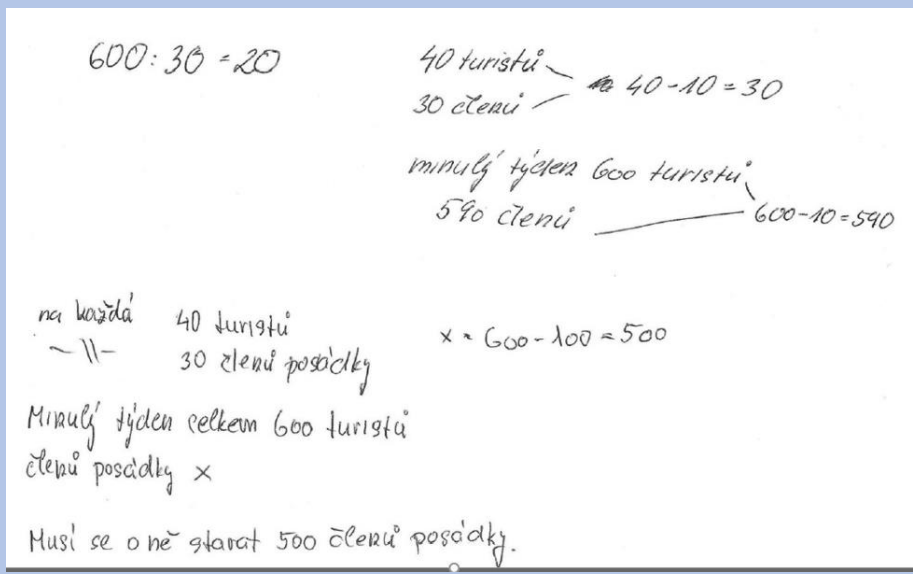 600 : 30 = 20
40 turistů
30 členů
40 - 10 = 30
minulý týden 600 turistů
590 členů
600 - 10 = 590
na každá 40 turistů
-11- 30 členů posádky
x = 600 - 100 = 500
Minulý týden celkem 600 turistů
členů posádky x
Musí se o ně starat 500 členů posádky.